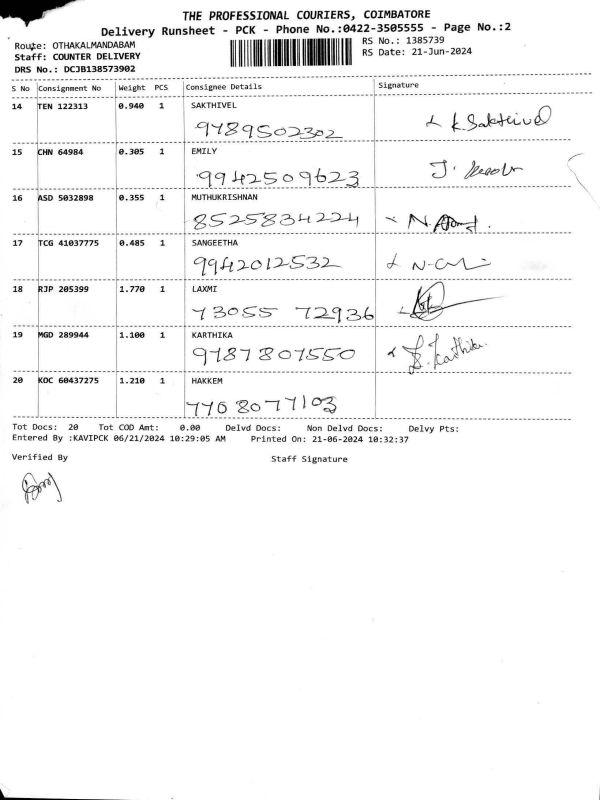 THE PROFESSIONAL COURIERS, COIMBATORE
Delivery Runsheet - PCK - Phone No.:0422-3505555 - Page No.:2
Route: OTHAKALMANDABAM
RS No.: 1385739
Staff: COUNTER DELIVERY
RS Date: 21-Jun-2024
DRS No.: DCJB138573902
S No Consignment No Weight PCS Consignee Details Signature
14 TEN 122313 0.940 1 SAKTHIVEL
9789502302 K. Sakthivel
15 CHN 64984 0.305 1 EMILY
9942509623
16 ASD 5032898 0.355 1 MUTHUKRISHNAN
8525834224
17 TCG 41037775 0.485 1 SANGEETHA
9942012532
18 RJP 205399 1.770 1 LAXMI
73055 72936
19 MGD 289944 1.100 1 KARTHIKA
9787807550 S. Karthika
20 KOC 60437275 1.210 1 HAKKEM
7708077103
Tot Docs: 20 Tot COD Amt: 0.00 Delvd Docs: Non Delvd Docs: Delvy Pts:
Entered By :KAVIPCK 06/21/2024 10:29:05 AM Printed On: 21-06-2024 10:32:37
Verified By Staff Signature